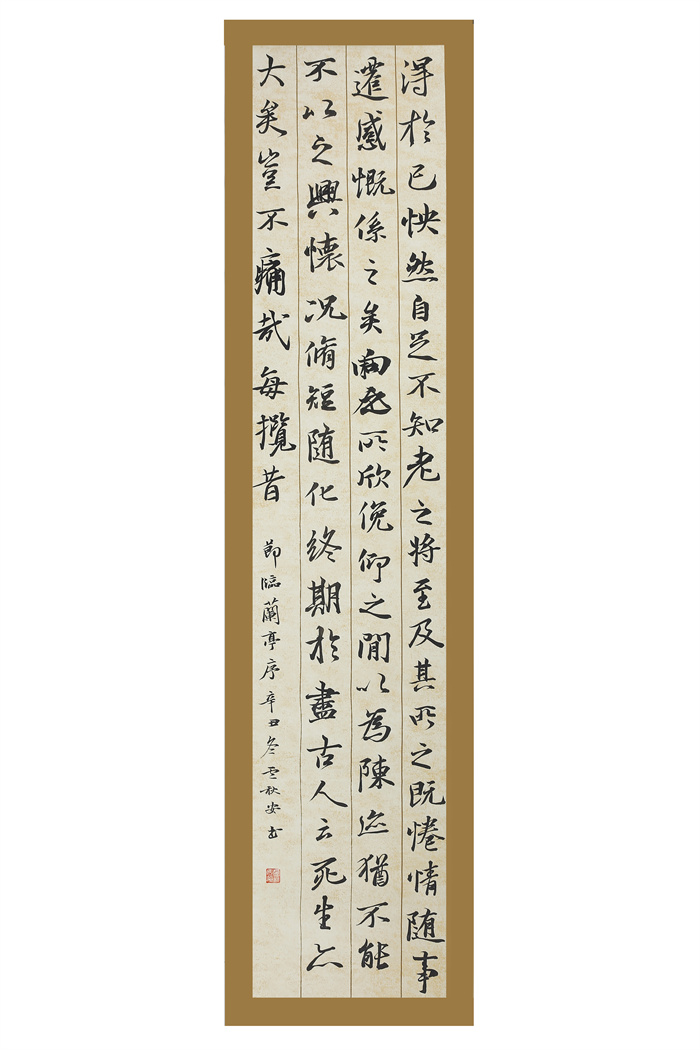 得於己怏然自足不知老之將至及其所之既惓情随事
遷感慨係之矣向之所欣俛仰之間以為陳迹猶不能
不以之興懷况脩短随化終期於盡古人云死生亦
大矣豈不痛哉每攬昔
節臨蘭亭序辛丑冬秋安书